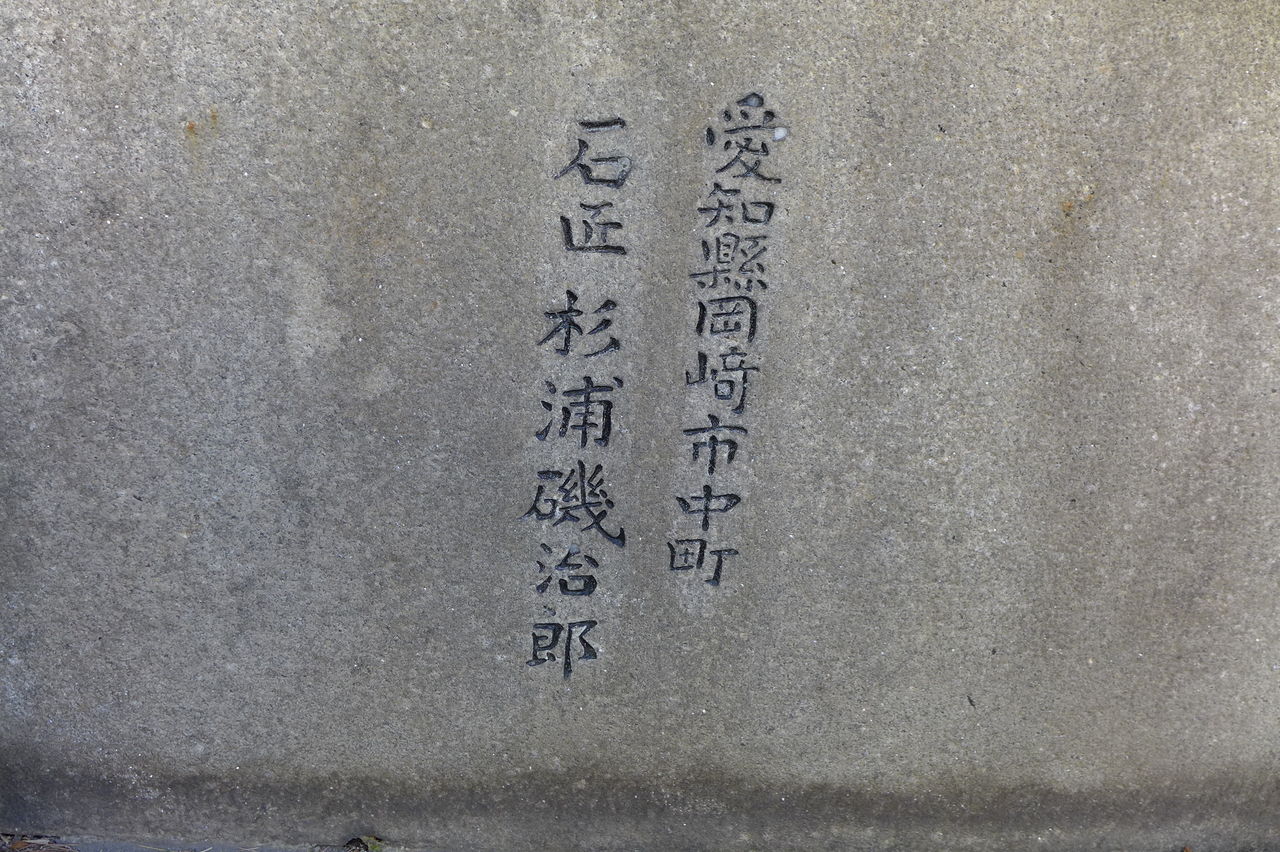 愛知縣岡﨑市中町
石匠 杉浦磯治郎